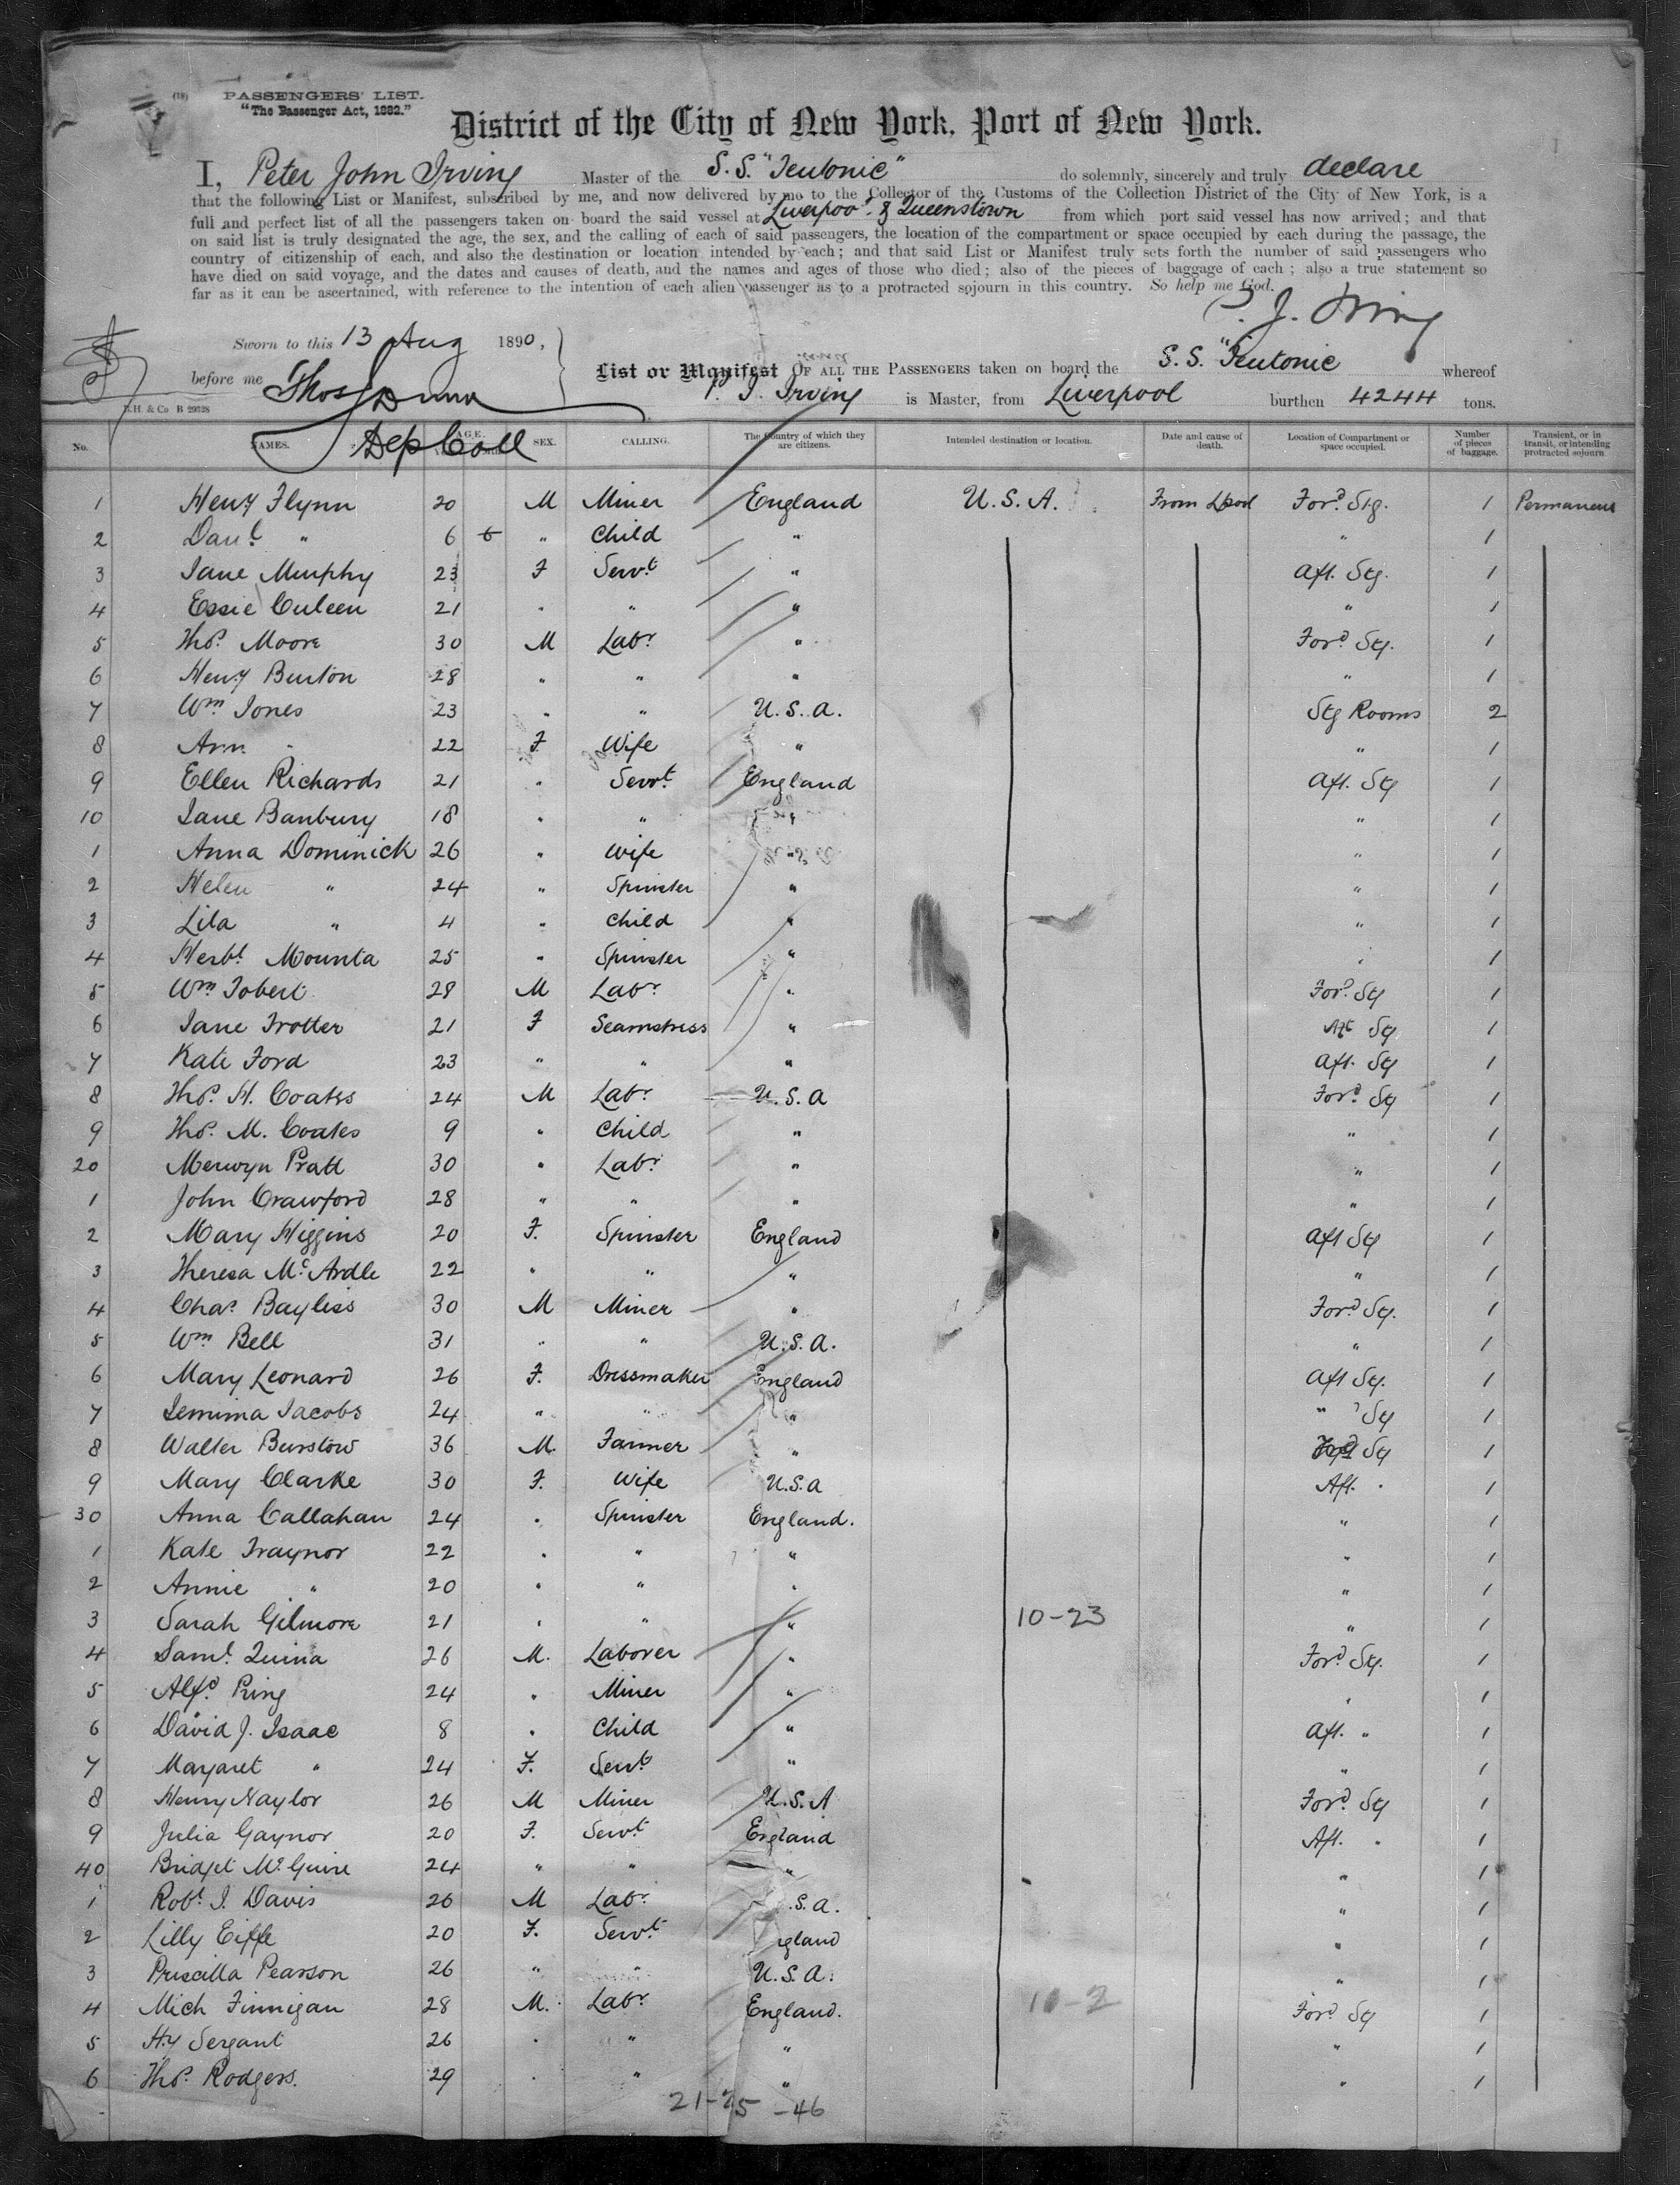 (18) PASSENGERS' LIST.
"The Passenger Act, 1882."
District of the City of New York, Port of New York.
I, Peter John Irving Master of the S.S. "Teutonic" do solemnly, sincerely and truly declare
that the following List or Manifest, subscribed by me, and now delivered by me to the Collector of the Customs of the Collection District of the City of New York, is a
full and perfect list of all the passengers taken on board the said vessel at Liverpool & Queenstown from which port said vessel has now arrived; and that
on said list is truly designated the age, the sex, and the calling of each of said passengers, the location of the compartment or space occupied by each during the passage, the
country of citizenship of each, and also the destination or location intended by each; and that said List or Manifest truly sets forth the number of said passengers who
have died on said voyage, and the dates and causes of death, and the names and ages of those who died; also of the pieces of baggage of each; also a true statement so
far as it can be ascertained, with reference to the intention of each alien passenger as to a protracted sojourn in this country. So help me God.
P. J. Irving
Sworn to this 13 Aug 1890,
before me Thos Dunn
Dep Coll
B.H. & Co B 29328
List or Manifest OF ALL THE PASSENGERS taken on board the S.S. "Teutonic whereof
P. J. Irving is Master, from Liverpool burthen 4244 tons.
No. NAMES. AGE. SEX. CALLING. The Country of which they are citizens. Intended destination or location. Date and cause of death. Location of Compartment or space occupied. Number of pieces of baggage. Transient, or in transit, or intending protracted sojourn
1 Heny Flynn 20 M Miner England U.S.A. From Lpool Ford Stg. 1 Permanent
2 Danl " 6 6 " Child " " 1
3 Jane Murphy 23 F Servt " Aft. Stg. 1
4 Essie Culeen 21 " " " " 1
5 Thos. Moore 30 M Labr " Ford Stg. 1
6 Heny Burton 28 " " " " 1
7 Wm Jones 23 " " U.S.A. Stg Rooms 2
8 Ann " 22 F Wife " " 1
9 Ellen Richards 21 " Servt England Aft. Stg 1
10 Jane Banbury 18 " " " " 1
1 Anna Dominick 26 " Wife " " 1
2 Helen " 24 " Spinster " " 1
3 Lila " 4 " Child " " 1
4 Herbt Mounta 25 " Spinster " " 1
5 Wm Tobert 28 M Labr " Ford Stg 1
6 Jane Trotter 21 F Seamstress " Aft Stg 1
7 Kate Ford 23 " " " Aft. Stg 1
8 Thos. H. Coates 24 M Labr U.S.A Ford Stg 1
9 Thos. M. Coates 9 " Child " " 1
20 Merwyn Pratt 30 " Labr " " 1
1 John Crawford 28 " " " " 1
2 Mary Higgins 20 F. Spinster England Aft Stg 1
3 Theresa McArdle 22 " " " " 1
4 Chas. Bayliss 30 M Miner " Ford Stg. 1
5 Wm Bell 31 " " U.S.A. " 1
6 Mary Leonard 26 F. Dressmaker England Aft Stg. 1
7 Jemima Jacobs 24 " " " " Stg 1
8 Walter Burstow 36 M. Farmer " Ford Stg 1
9 Mary Clarke 30 F. Wife U.S.A Aft. " 1
30 Anna Callahan 24 " Spinster England. " 1
1 Kate Traynor 22 " " " " 1
2 Annie " 20 " " " " 1
3 Sarah Gilmore 21 " " " 10-23 " 1
4 Saml Quina 26 M. Laborer " Ford Stg. 1
5 Alfd Ring 24 " Miner " " 1
6 David J. Isaac 8 " Child " Aft. " 1
7 Margaret " 24 F. Servt " " 1
8 Henry Naylor 26 M Miner U.S.A Ford Stg 1
9 Julia Gaynor 20 F. Servt England Aft. " 1
40 Bridget McGuire 24 " " " " 1
1 Robt J. Davis 26 M Labr .S.A. " 1
2 Lilly Eiffe 20 F. Servt gland " 1
3 Priscilla Pearson 26 " " U.S.A. " 1
4 Mich Finnigan 28 M. Labr England. 10-2 Ford Stg 1
5 Hy Sergant 26 " " " " 1
6 Thos. Rodgers. 29 " " " " 1
21-25 -46